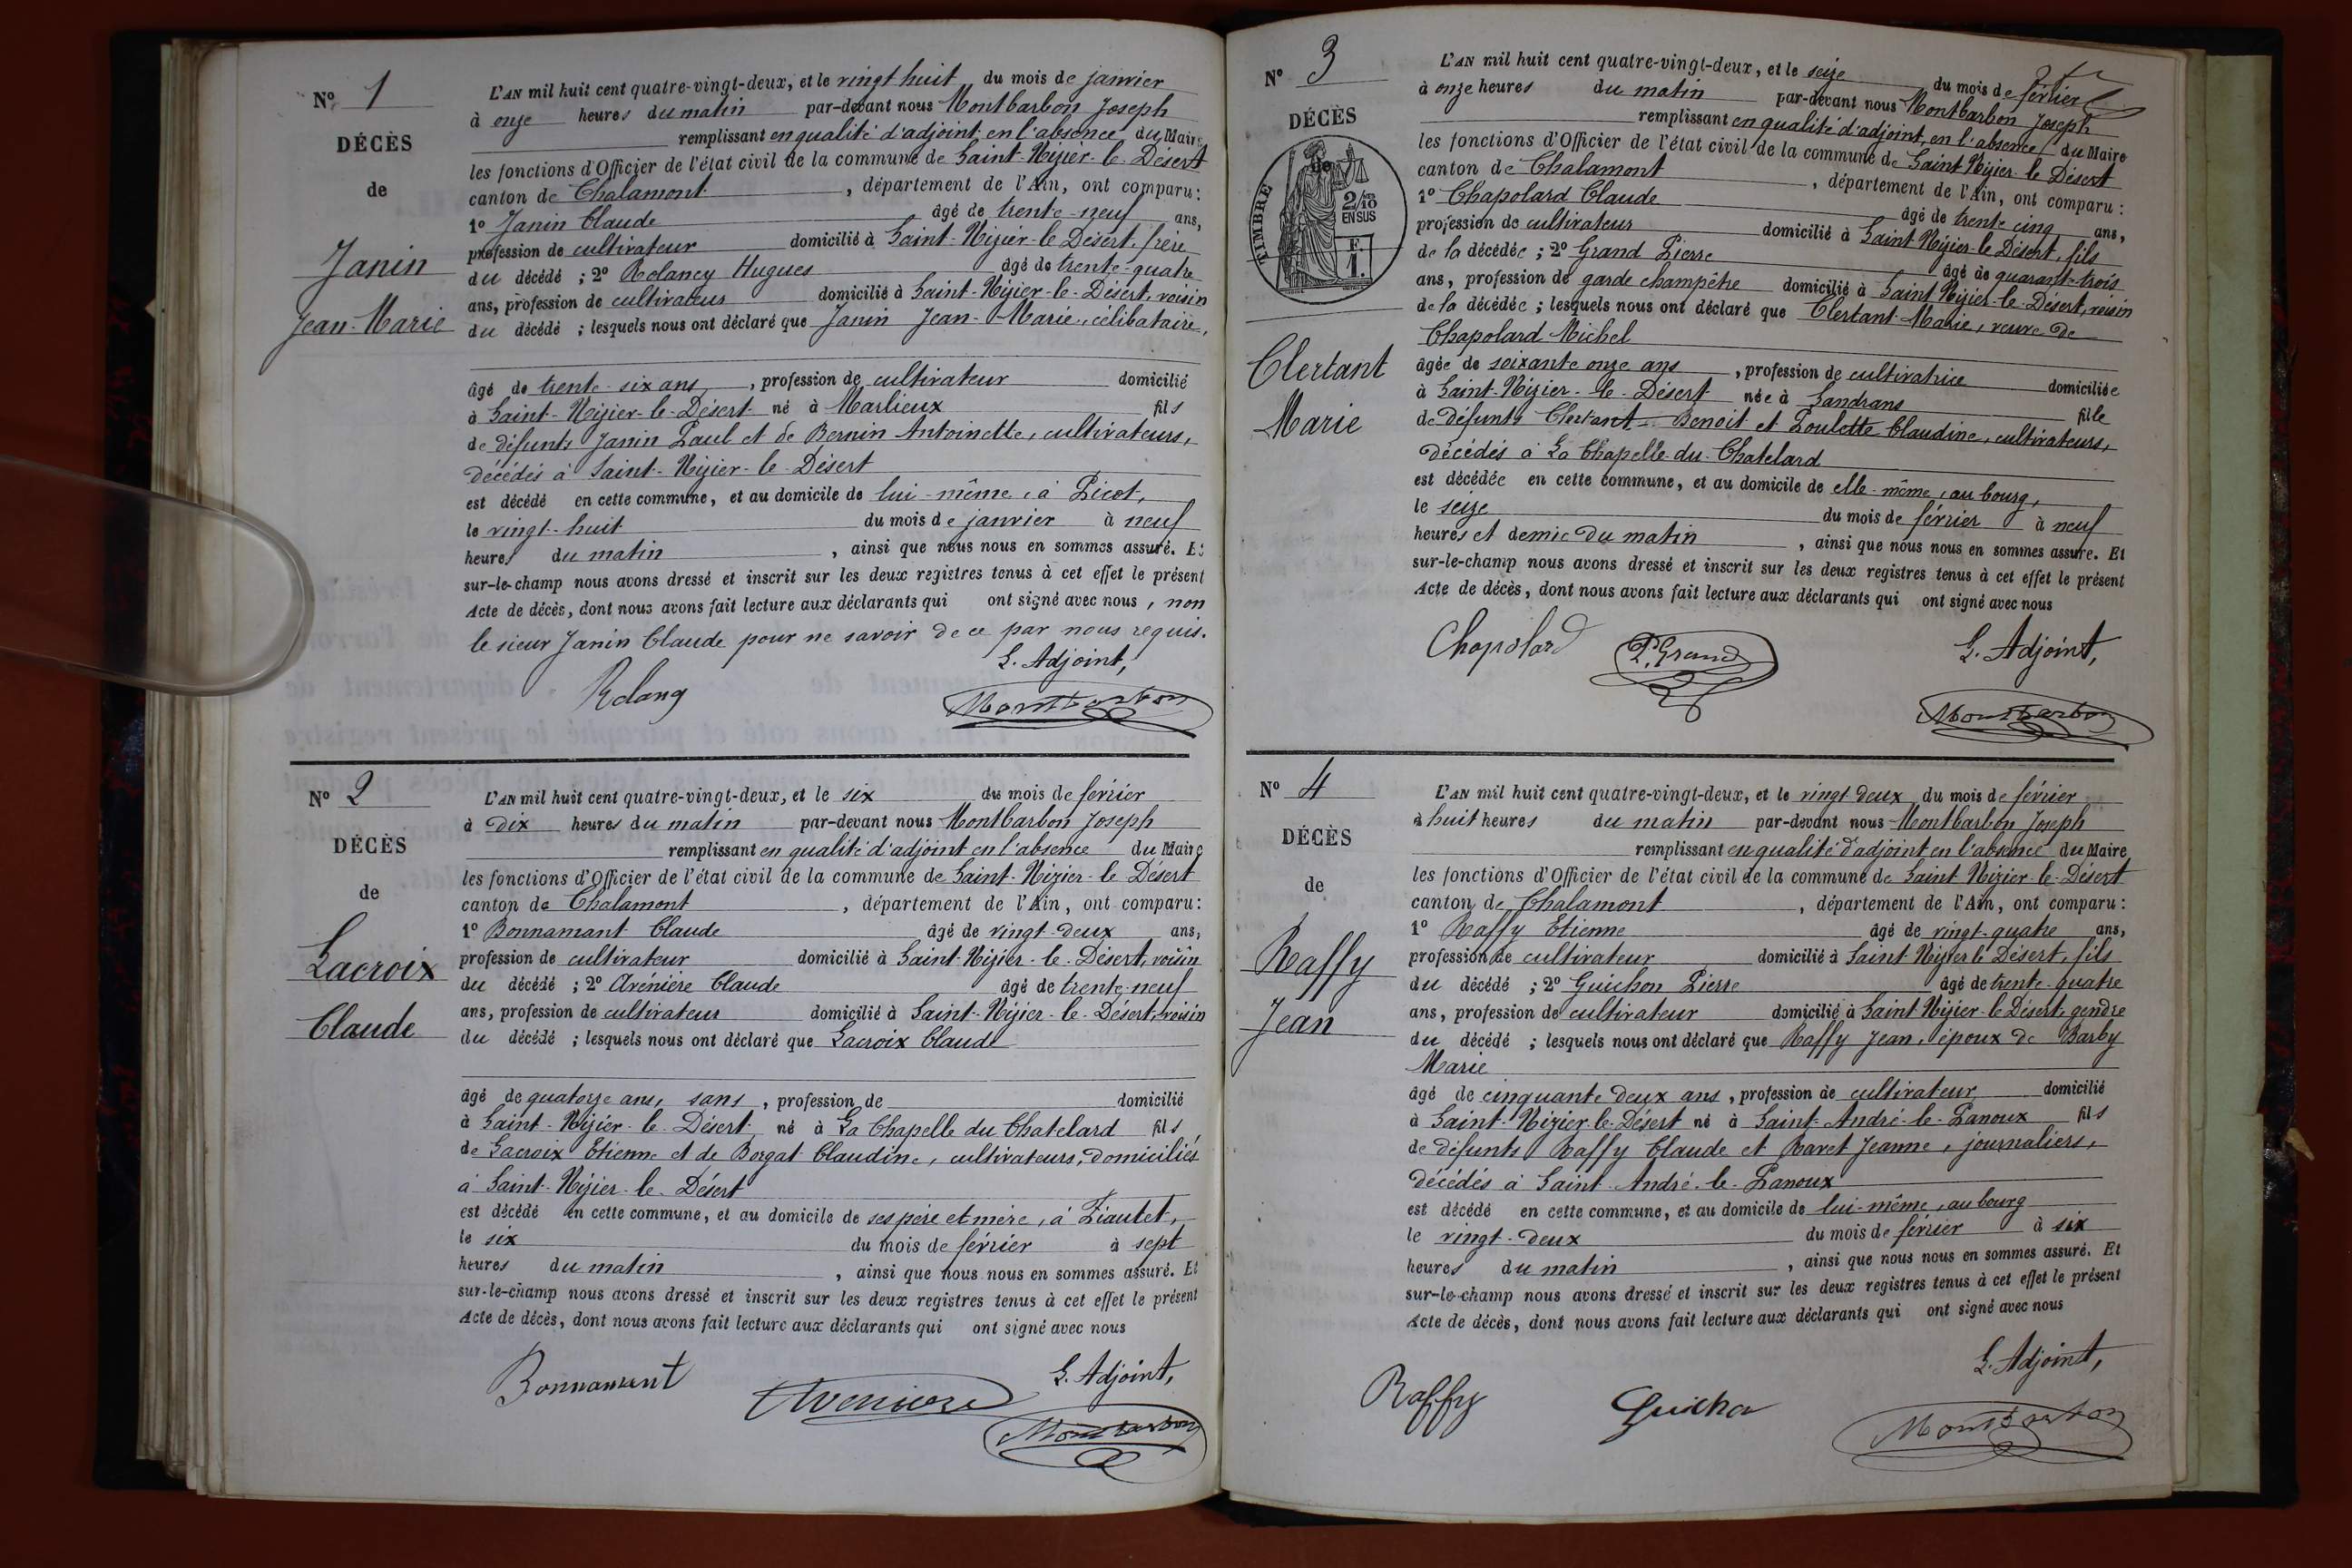 N° 1
DÉCÈS
de
Janin
Jean-Marie
L'AN mil huit cent quatre-vingt-deux, et le vingt huit du mois de janvier
à onze heures du matin par-devant nous Montbarbon Joseph
remplissant en qualité d'adjoint en l'absence du Maire
les fonctions d'Officier de l'état civil de la commune de Saint-Nizier-le-Désert
canton de Chalamont, département de l'Ain, ont comparu:
1° Janin Claude âgé de trente-neuf ans,
profession de cultivateur domicilié à Saint-Nizier-le-Désert, frère
du décédé ; 2° Relancy Hugues âgé de trente-quatre
ans, profession de cultivateur domicilié à Saint-Nizier-le-Désert, voisin
du décédé ; lesquels nous ont déclaré que Janin Jean-Marie, célibataire,
âgé de trente-six ans, profession de cultivateur domicilié
à Saint-Nizier-le-Désert né à Marlieux fils
de défunts Janin Paul et de Bernin Antoinette, cultivateurs,
décédés à Saint-Nizier-le-Désert
est décédé en cette commune, et au domicile de lui-même, à Picot,
le vingt-huit du mois de janvier à neuf
heures du matin, ainsi que nous nous en sommes assuré. Et
sur-le-champ nous avons dressé et inscrit sur les deux registres tenus à cet effet le présent
Acte de décès, dont nous avons fait lecture aux déclarants qui ont signé avec nous, non
le sieur Janin Claude pour ne savoir de ce par nous requis.
L. Adjoint,
Relang
Montbarbon
N° 2
DÉCÈS
de
Lacroix
Claude
L'AN mil huit cent quatre-vingt-deux, et le six du mois de février
à dix heures du matin par-devant nous Montbarbon Joseph
remplissant en qualité d'adjoint en l'absence du Maire
les fonctions d'Officier de l'état civil de la commune de Saint-Nizier-le Désert
canton de Chalamont, département de l'Ain, ont comparu:
1° Bonnamant Claude âgé de vingt-deux ans,
profession de cultivateur domicilié à Saint-Nizier-le-Désert, voisin
du décédé ; 2° Avénière Claude âgé de trente-neuf
ans, profession de cultivateur domicilié à Saint-Nizier-le-Désert, voisin
du décédé ; lesquels nous ont déclaré que Lacroix Claude
âgé de quatorze ans, sans, profession de domicilié
à Saint-Nizier-le-Désert né à La Chapelle du Chatelard fils
de Lacroix Etienne et de Borgat Claudine, cultivateurs, domiciliés
à Saint-Nizier-le-Désert
est décédé en cette commune, et au domicile de ses père et mère, à Ziautet,
le six du mois de février à sept
heures du matin, ainsi que nous nous en sommes assuré. Et
sur-le-champ nous avons dressé et inscrit sur les deux registres tenus à cet effet le présent
Acte de décès, dont nous avons fait lecture aux déclarants qui ont signé avec nous
L. Adjoint,
Bonnamant
Avenière
Montbarbon
N° 3
DÉCÈS
de
TIMBRE
2/10 EN SUS
F. 1.
Clertant
Marie
L'AN mil huit cent quatre-vingt-deux, et le seize du mois de février
à onze heures du matin par-devant nous Montbarbon Joseph
remplissant en qualité d'adjoint, en l'absence du Maire
les fonctions d'Officier de l'état civil de la commune de Saint Nizier-le Désert
canton de Chalamont, département de l'Ain, ont comparu :
1° Chapolard Claude âgé de trente cinq ans,
profession de cultivateur domicilié à Saint Nizier-le Désert, fils
de la décédée ; 2° Grand Pierre âgé de quarant-trois
ans, profession de garde champêtre domicilié à Saint Nizier-le-Désert, voisin
de la décédée ; lesquels nous ont déclaré que Clertant Marie, veuve de
Chapolard Michel
âgée de soixante onze ans, profession de cultivatrice domiciliée
à Saint-Nizier-le-Désert née à Sandrans fille
de défunts Clertant Benoit et Poulette Claudine, cultivateurs,
décédés à La Chapelle-du-Chatelard
est décédée en cette commune, et au domicile de elle-même, au bourg,
le seize du mois de février à neuf
heures et demie du matin, ainsi que nous nous en sommes assuré. Et
sur-le-champ nous avons dressé et inscrit sur les deux registres tenus à cet effet le présent
Acte de décès, dont nous avons fait lecture aux déclarants qui ont signé avec nous
Chapolard
P. Grand
L. Adjoint,
Montbarbon
N° 4
DÉCÈS
de
Raffy
Jean
L'AN mil huit cent quatre-vingt-deux, et le vingt deux du mois de février
à huit heures du matin par-devant nous Montbarbon Joseph
remplissant en qualité d'adjoint en l'absence du Maire
les fonctions d'Officier de l'état civil de la commune de Saint Nizier-le-Désert
canton de Chalamont, département de l'Ain, ont comparu :
1° Raffy Etienne âgé de vingt-quatre ans,
profession de cultivateur domicilié à Saint Nizier le Désert, fils
du décédé ; 2° Guichon Pierre âgé de trente-quatre
ans, profession de cultivateur domicilié à Saint Nizier-le Désert, gendre
du décédé ; lesquels nous ont déclaré que Raffy Jean, époux de Barby
Marie
âgé de cinquante deux ans, profession de cultivateur domicilié
à Saint-Nizier-le-Désert né à Saint-André-le-Panoux fils
de défunts Raffy Claude et Ravet Jeanne, journaliers,
décédés à Saint-André-le-Panoux
est décédé en cette commune, et au domicile de lui-même, au bourg
le vingt-deux du mois de février à six
heures du matin, ainsi que nous nous en sommes assuré. Et
sur-le-champ nous avons dressé et inscrit sur les deux registres tenus à cet effet le présent
Acte de décès, dont nous avons fait lecture aux déclarants qui ont signé avec nous
L. Adjoint,
Raffy
Guichon
Montbarbon